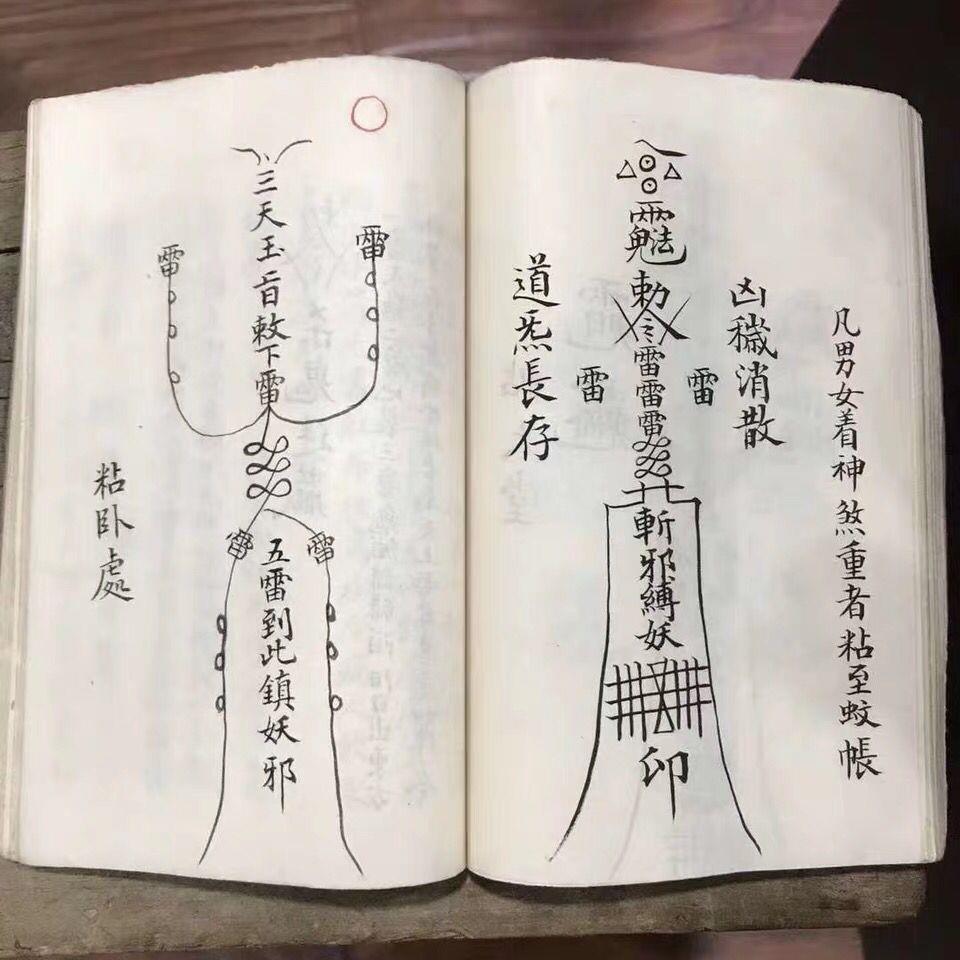 凡男女着神煞重者粘至蚊帳
凶穢消散
雷
勅令雷雷雷
斬邪縛妖
印
雷
道炁長存
雷
三天玉㫖敕下雷
雷
雷
五雷到此鎮妖邪
雷
粘卧處